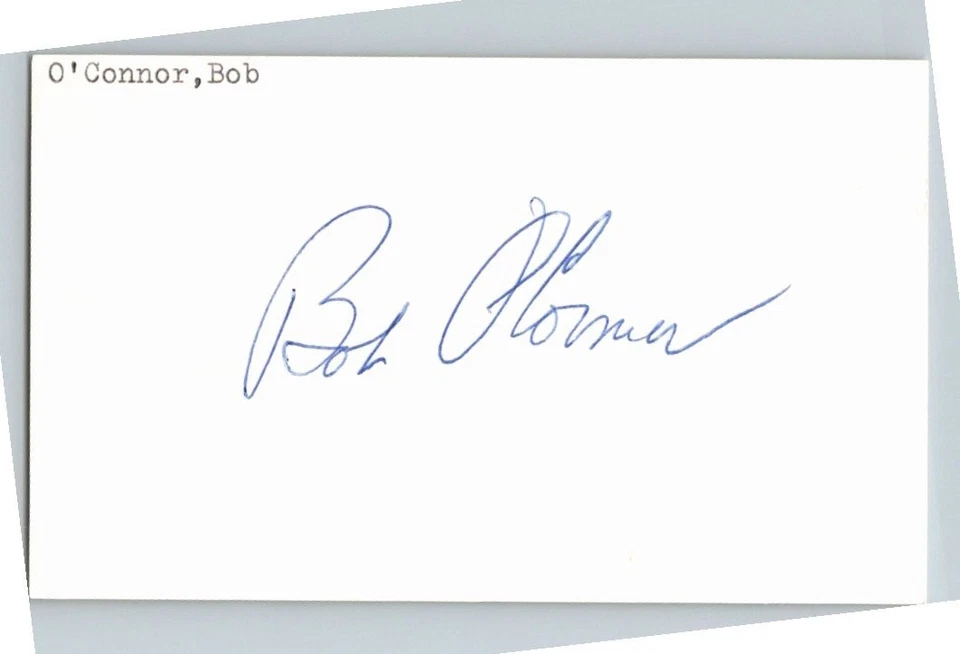 O'Connor,Bob
Bob O'Connor